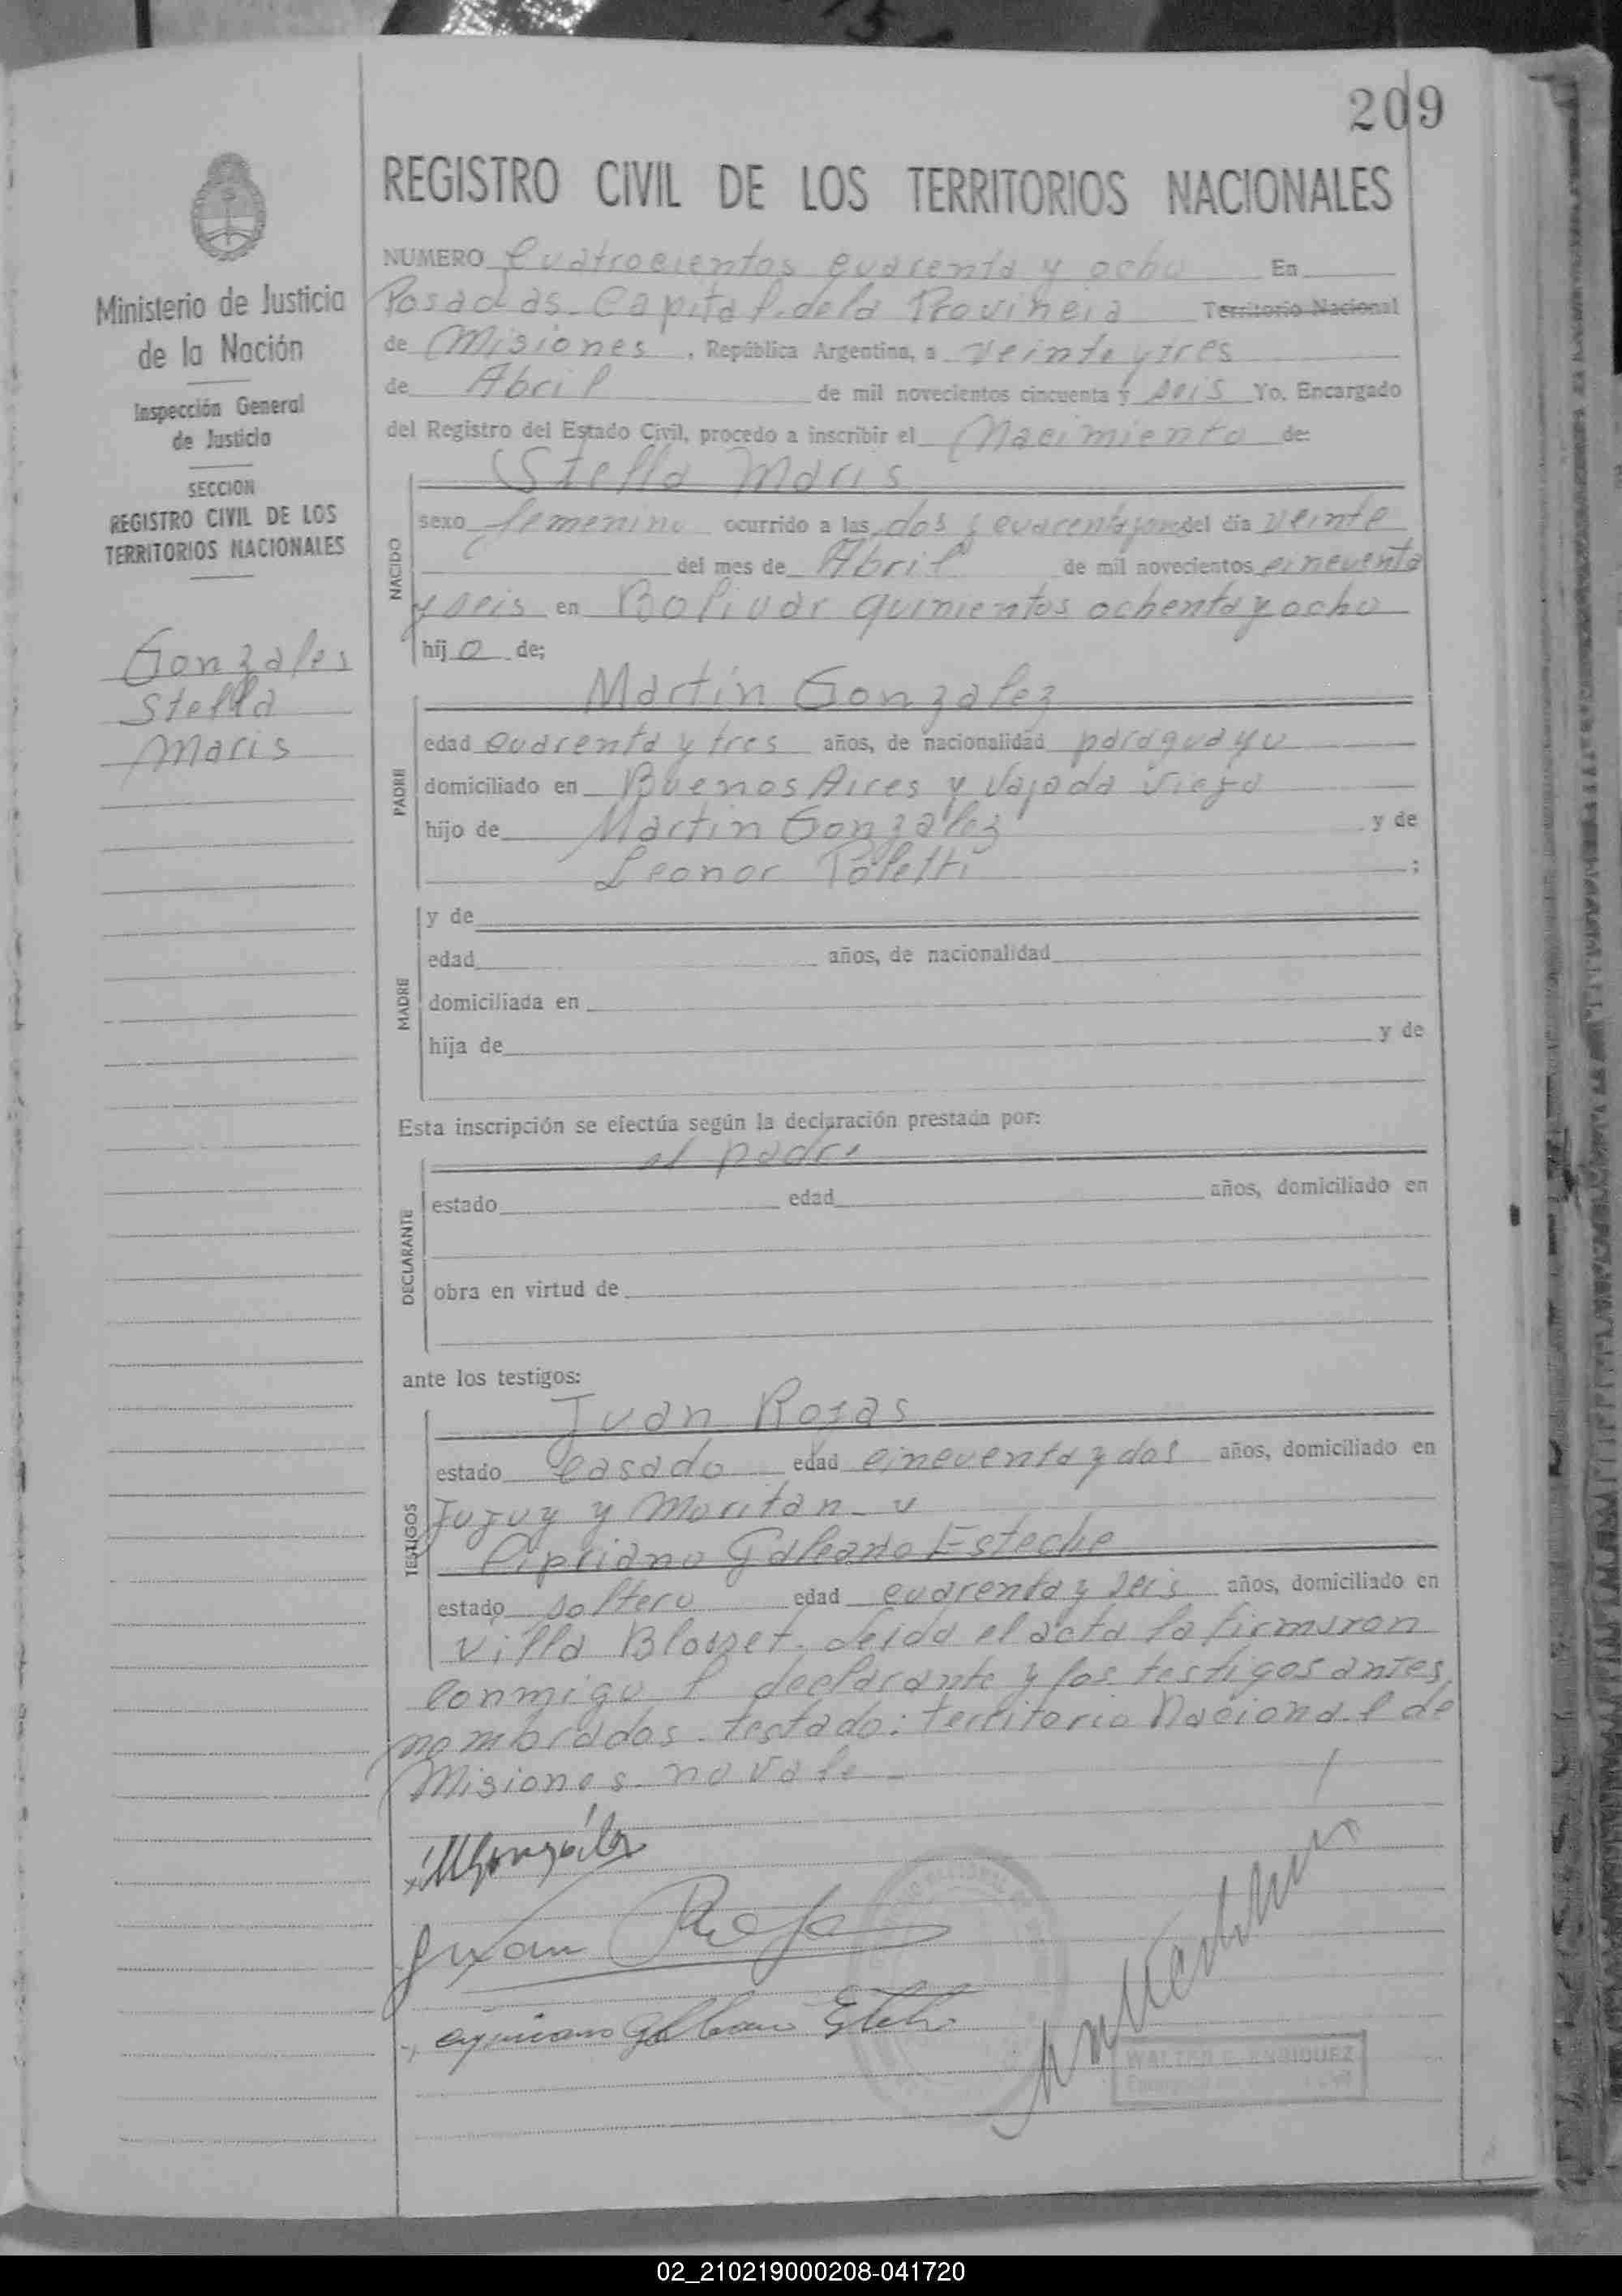 209
REGISTRO CIVIL DE LOS TERRITORIOS NACIONALES
Ministerio de Justicia
de la Nación
Inspección General
de Justicia
SECCION
REGISTRO CIVIL DE LOS
TERRITORIOS NACIONALES
Gonzales
Stella
Maris
NUMERO Cuatrocientos cuarenta y ocho En
Posadas. Capital de la Provincia Territorio Nacional
de Misiones, República Argentina, a veinte y tres
de Abril de mil novecientos cincuenta y seis Yo, Encargado
del Registro del Estado Civil, procedo a inscribir el Nacimiento de:
Stella Maris
NACIDO
sexo femenino ocurrido a las dos y cuarenta del día veinte
del mes de Abril de mil novecientos cincuenta
y seis en Bolivar quinientos ochenta y ocho
hij a de;
Martín Gonzalez
PADRE
edad cuarenta y tres años, de nacionalidad paraguayo
domiciliado en Buenos Aires y Vajada Vieja
hijo de Martin Gonzalez y de
Leonor Poletti ;
MADRE
y de
edad años, de nacionalidad
domiciliada en
hija de y de
Esta inscripción se efectúa según la declaración prestada por:
el padre
DECLARANTE
estado edad años, domiciliado en
obra en virtud de
ante los testigos:
Juan Rojas
TESTIGOS
estado casado edad cincuenta y dos años, domiciliado en
Jujuy y Moritan y
Cipriano Galeano Esteche
estado soltero edad cuarenta y seis años, domiciliado en
Villa Blosset. Leida el acta la firmaron
conmigo l declarante y los testigos antes
nombrados. testado: territorio Nacional de
Misiones. no vale -
MGonzález
Juan Roja
cipriano Galeano Estech
WALTER E. ENRIQUEZ
02_210219000208-041720